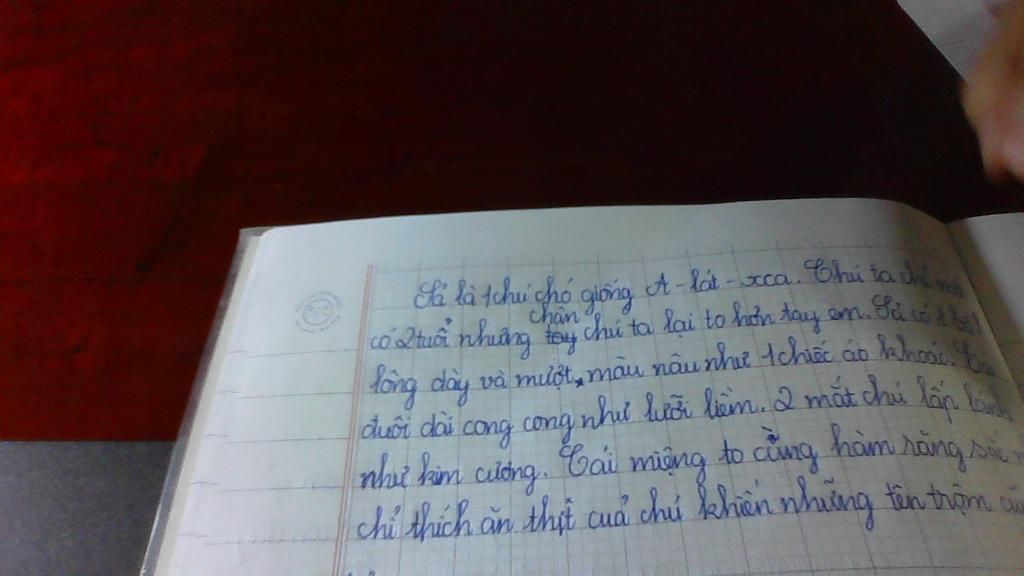 là 1 chú chó giống A-lát-xca. Chú ta chỉ mới
chân
có 2 tuổi nhưng tay chú ta lại to hơn tay em. có 1
lông dày và mượt, màu nâu như 1 chiếc áo khoác.
đuôi dài cong cong như lưỡi liềm. 2 mắt chú lấp lánh
như kim cương. Cái miệng to cùng hàm răng sắc
chỉ thích ăn thịt cuả chú khiến những tên trộm